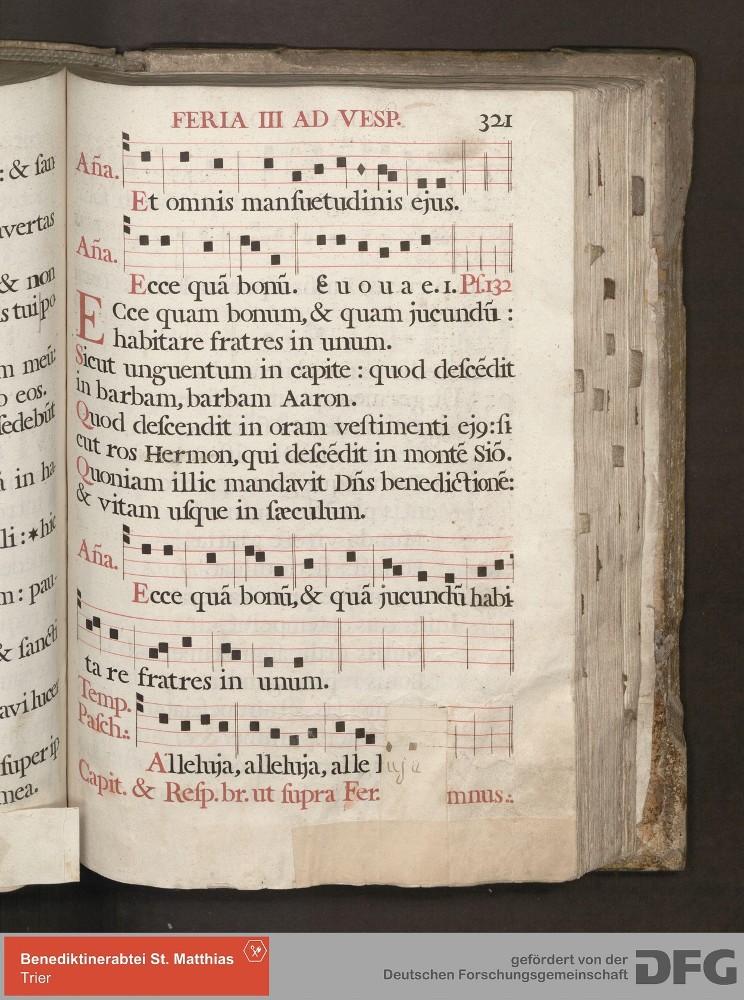 : & ſan
avertas
& non
s tui po
m meū:
o eos.
ſedebūt
ā in ha
li : ✶hic
m : pau-
& ſancti
avi lucer
ſuper ip
mea.
FERIA III AD VESP. 321
Aña.
Et omnis manſuetudinis ejus.
Aña.
Ecce quā bonū. e u o u a e. 1. Pſ.132
ECce quam bonum, & quam jucundū :
habitare fratres in unum.
Sicut unguentum in capite : quod deſcēdit
in barbam, barbam Aaron.
Quod deſcendit in oram veſtimenti ej9: ſi
cut ros Hermon, qui deſcēdit in montē Siō.
Quoniam illic mandavit Dñs benedictionē:
& vitam uſque in ſæculum.
Aña.
Ecce quā bonū, & quā jucundū habi-
ta re fratres in unum.
Temp.
Paſch.:
Alleluja, alleluja, alle luja
Capit. & Reſp. br. ut ſupra Fer. mnus.:
Benediktinerabtei St. Matthias
Trier
gefördert von der
Deutschen Forschungsgemeinschaft
DFG